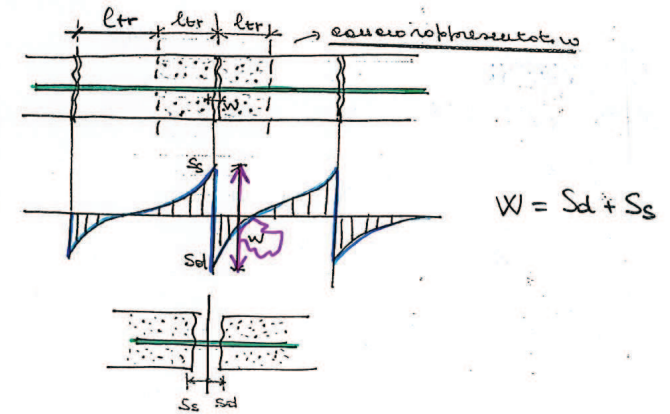 ltr ltr ltr
concio rappresentativo
w
Ss
W = Sd + Ss
w
Sd
Ss Sd